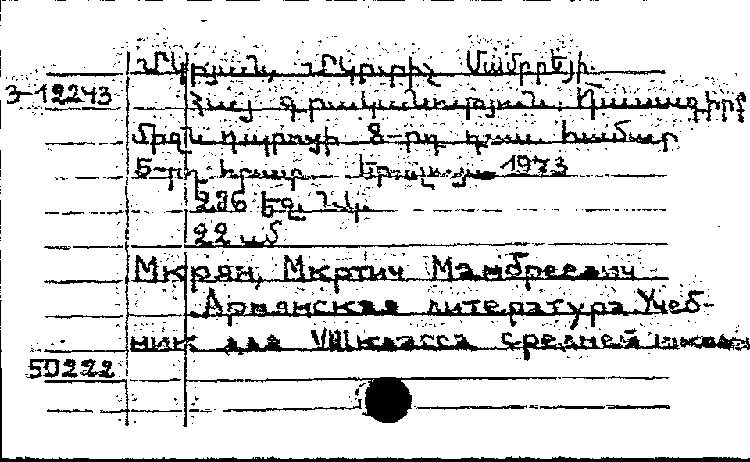 Մկրյան, Մկրտիչ Մամբրեյի
3-12243
Հայ գրականություն. Դասագիրք
միջն դպրոցի 8-րդ դաս. համար
5-րդ հրատ. Երևան 1973
296 եջ նկ.
22 սմ
Мкрян, Мкртич Мамбреевич
Армянская литература. Учеб-
ник для VIII класса средней школы
50222